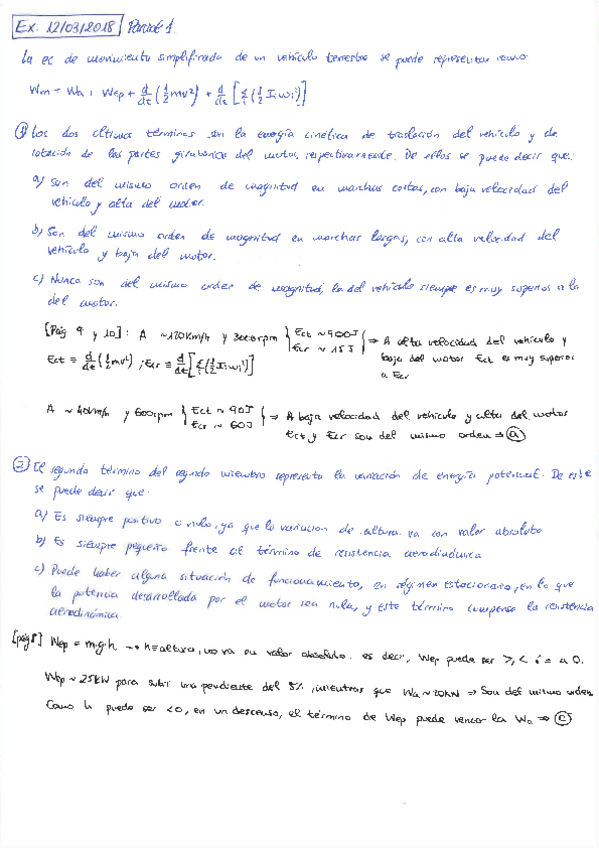 Ex. 12/03/2018 Parcial 1.
La ec de movimiento simplificada de un vehículo terrestre se puede representar como
Wm = Wa + Wep + d/dt (1/2 mv²) + d/dt [Σi (1/2 Ii wi²)]
① Los dos últimos términos son la energía cinética de traslación del vehículo y de
rotación de las partes giratorias del motor, respectivamente. De ellos se puede decir que:
a) Son del mismo orden de magnitud en marchas cortas, con baja velocidad del
vehículo y alta del motor.
b) Son del mismo orden de magnitud en marchas largas, con alta velocidad del
vehículo y baja del motor.
c) Nunca son del mismo orden de magnitud, la del vehículo siempre es muy superior a la
del motor.
[Pág 9 y 10]: A ~120Km/h y 3000rpm } Ect ~900J
Ecr ~ 15J } ⇒ A alta velocidad del vehículo y
baja del motor Ect es muy superior
a Ecr
Ect ≡ d/dt (1/2 mv²) ; Ecr ≡ d/dt [Σi (1/2 Ii wi²)]
A ~40km/h y 6000rpm } Ect ~ 90J
Ecr ~ 60J } ⇒ A baja velocidad del vehículo y alta del motor
Ect y Ecr son del mismo orden ⇒ ⓐ
② El segundo término del segundo miembro representa la variación de energía potencial. De este
se puede decir que:
a) Es siempre positivo o nulo, ya que la variación de altura va con valor absoluto
b) Es siempre pequeño frente al término de resistencia aerodinámica
c) Puede haber alguna situación de funcionamiento, en régimen estacionario, en lo que
la potencia desarrollada por el motor sea nula, y este término compense la resistencia
aerodinámica.
[pág 8] Wep = m·g·h → h≡altura, no va su valor absoluto. es decir, Wep puede ser >, < ó = a 0.
Wep ~ 25KW para subir una pendiente del 5%, mientras que Wa ~ 20KW ⇒ Son del mismo orden
Como h puede ser <0, en un descenso, el término de Wep puede vencer la Wa ⇒ ⓒ